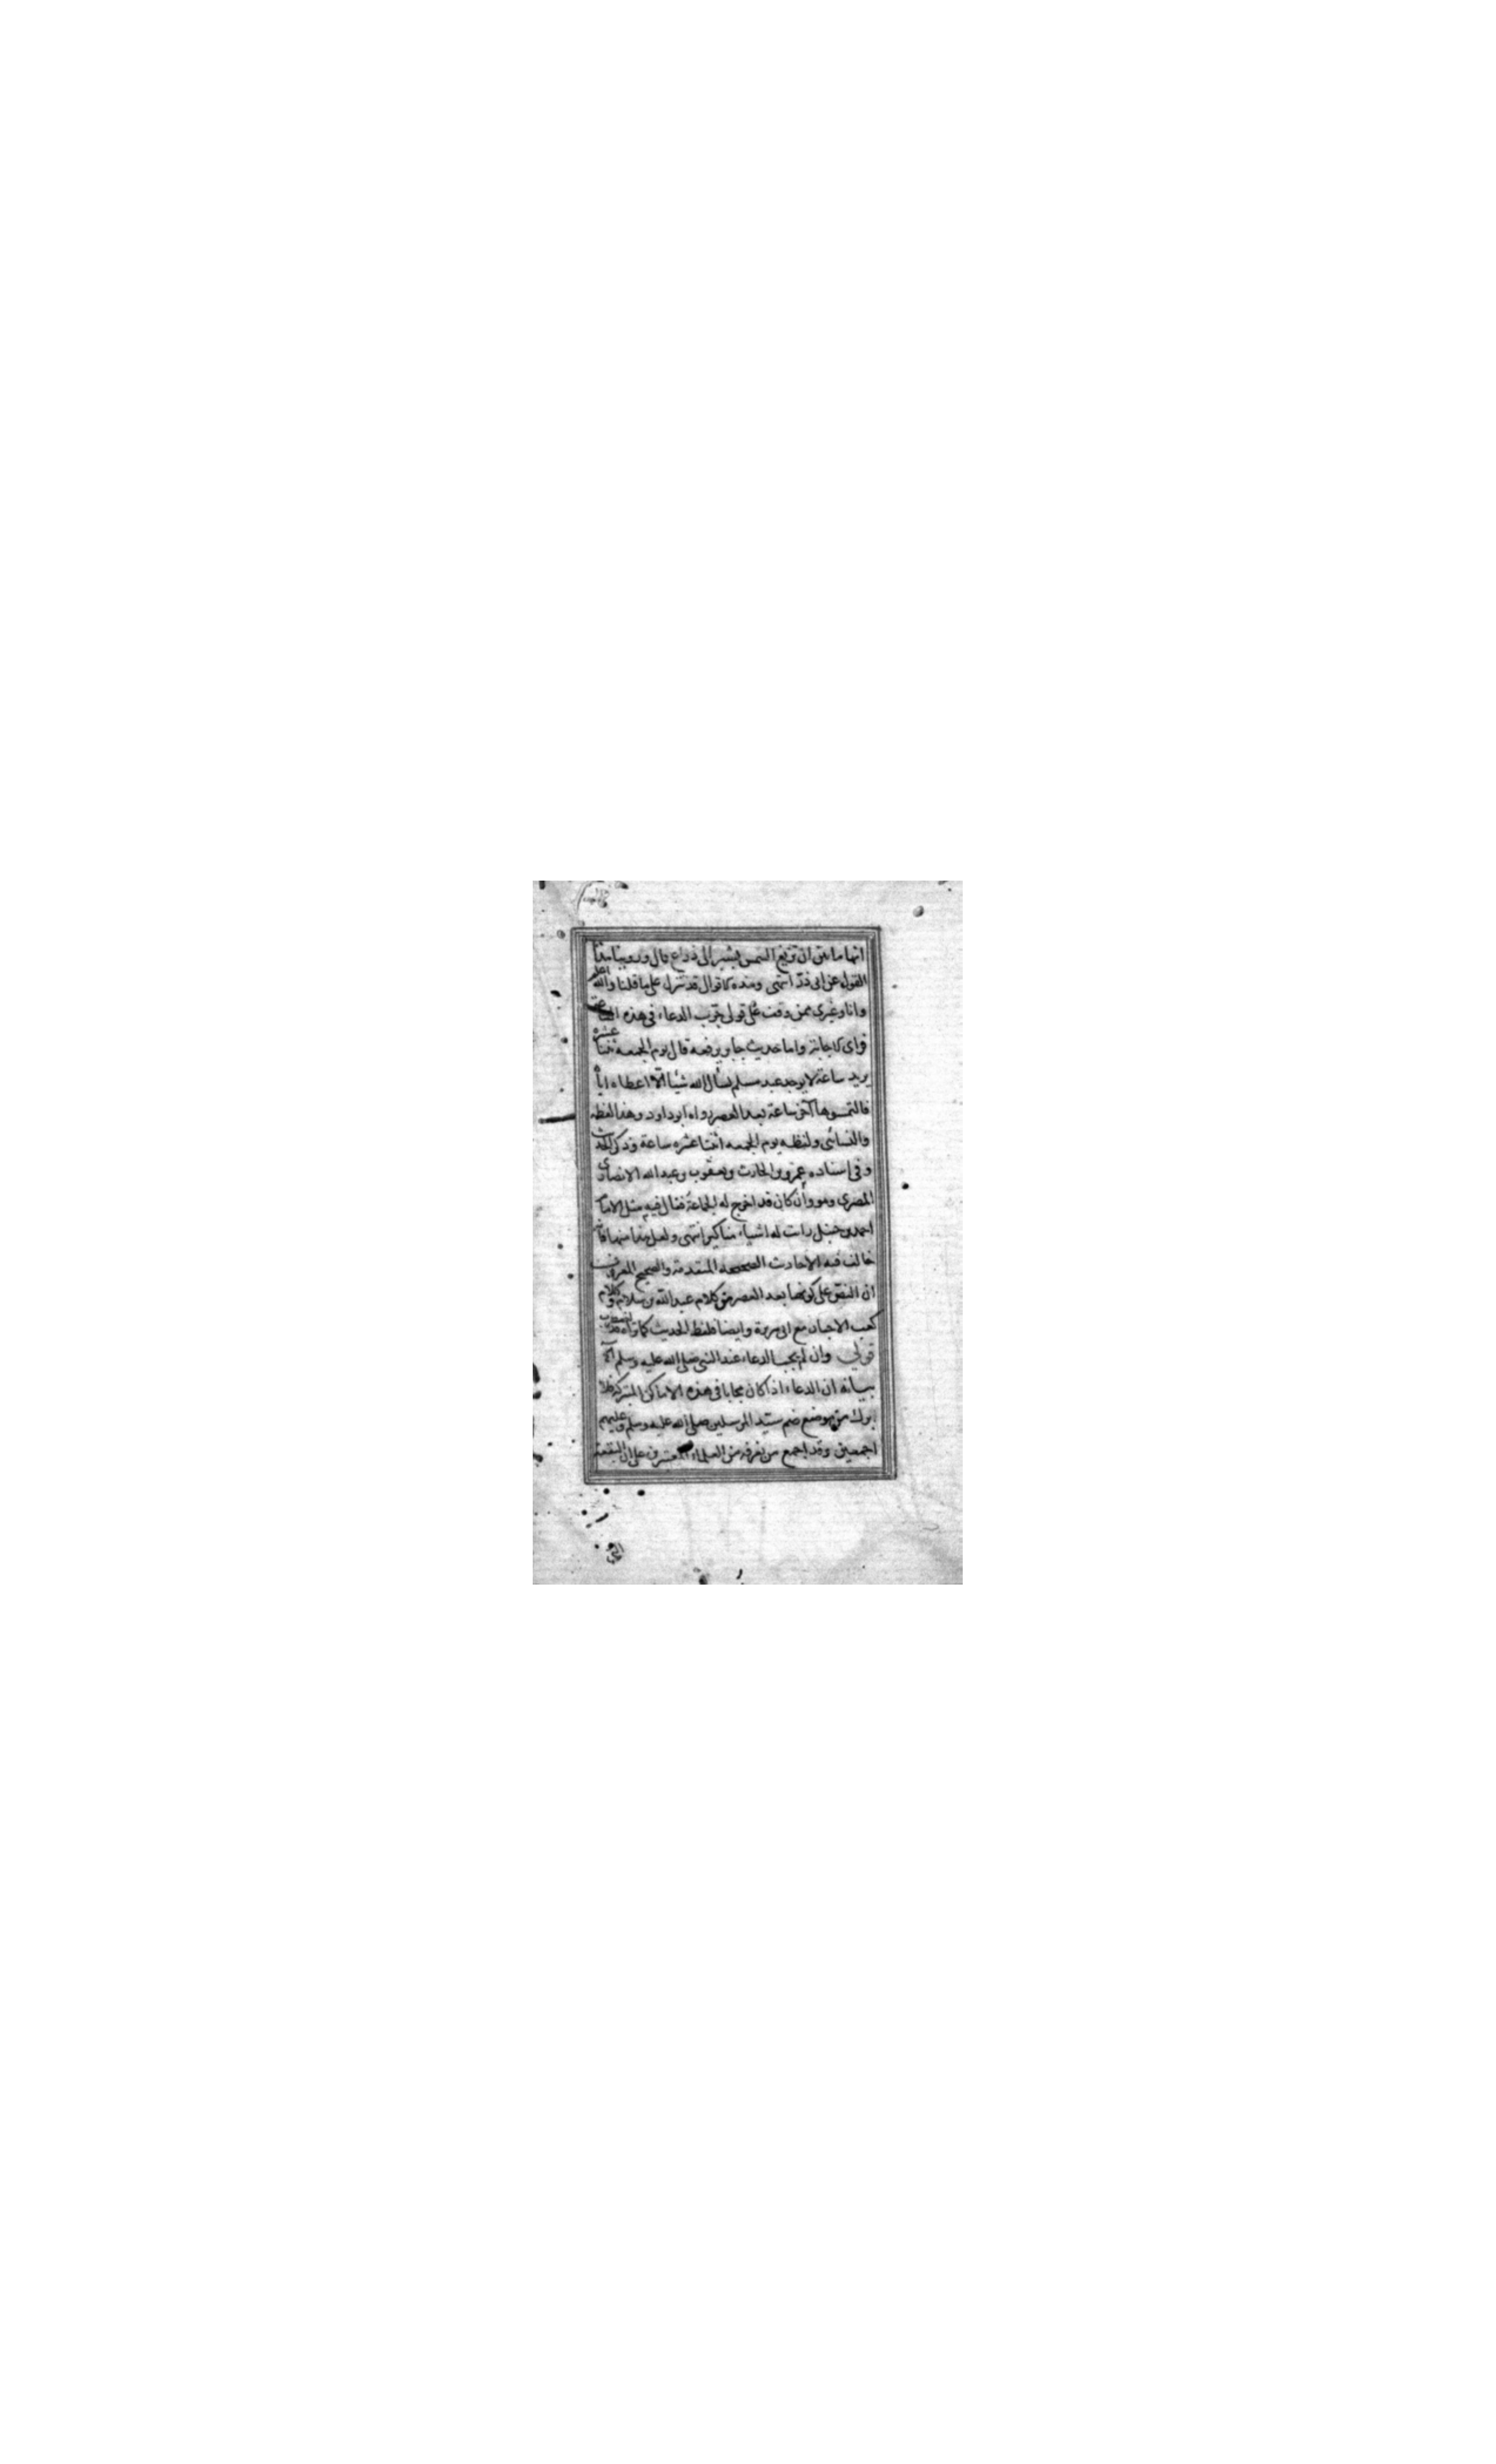 انها ما بين ان تزيغ الشمس بشبر الى ذراع قال وروينا هذا
القول عن ابى ذر انتهى وهذه الاقوال قد تنزل على ما قلنا والله اعلم
وانا وغيرى ممن وقف على قولى جرب الدعاء فى هذه الساعة
فراى الاجابة واما حديث جابر يرفعه قال يوم الجمعه ثنتا عشره
يريد ساعة لا يوجد عبد مسلم يسأل الله شيئا الا اعطاه اياه
فالتمسوها آخر ساعة بعد العصر رواه ابو داود وهذا لفظه
والنسائى ولفظه يوم الجمعه اثنتا عشره ساعة وذكر الحديث
وفى اسناده عمرو بن الحارث ويعقوب وعبد الله الانصارى
المصرى وهو وان كان قد اخرج له الجماعة فقال فيه مثل الامام
احمد بن حنبل رأيت له اشياء مناكير انتهى ولعل هذا منها فانه
خالف فيه الاحاديث الصحيحه المتقدمة والصحيح المعروف
ان النص على كونها بعد العصر من كلام عبد الله بن سلام وكلام
كعب الاحبار مع ابى هريرة وايضا فلفظ الحديث كما تراه
قولى وان لم يجب الدعاء عند النبى صلى الله عليه وسلم
بيانه ان الدعاء اذا كان مجابا فى هذه الاماكن المتبركة فلا
ابرك من موضع ضم سيد المرسلين صلى الله عليه وسلم وعليهم
اجمعين وقد اجمع من يعرف من العلماء المعتبرين على ان البقعة
التى